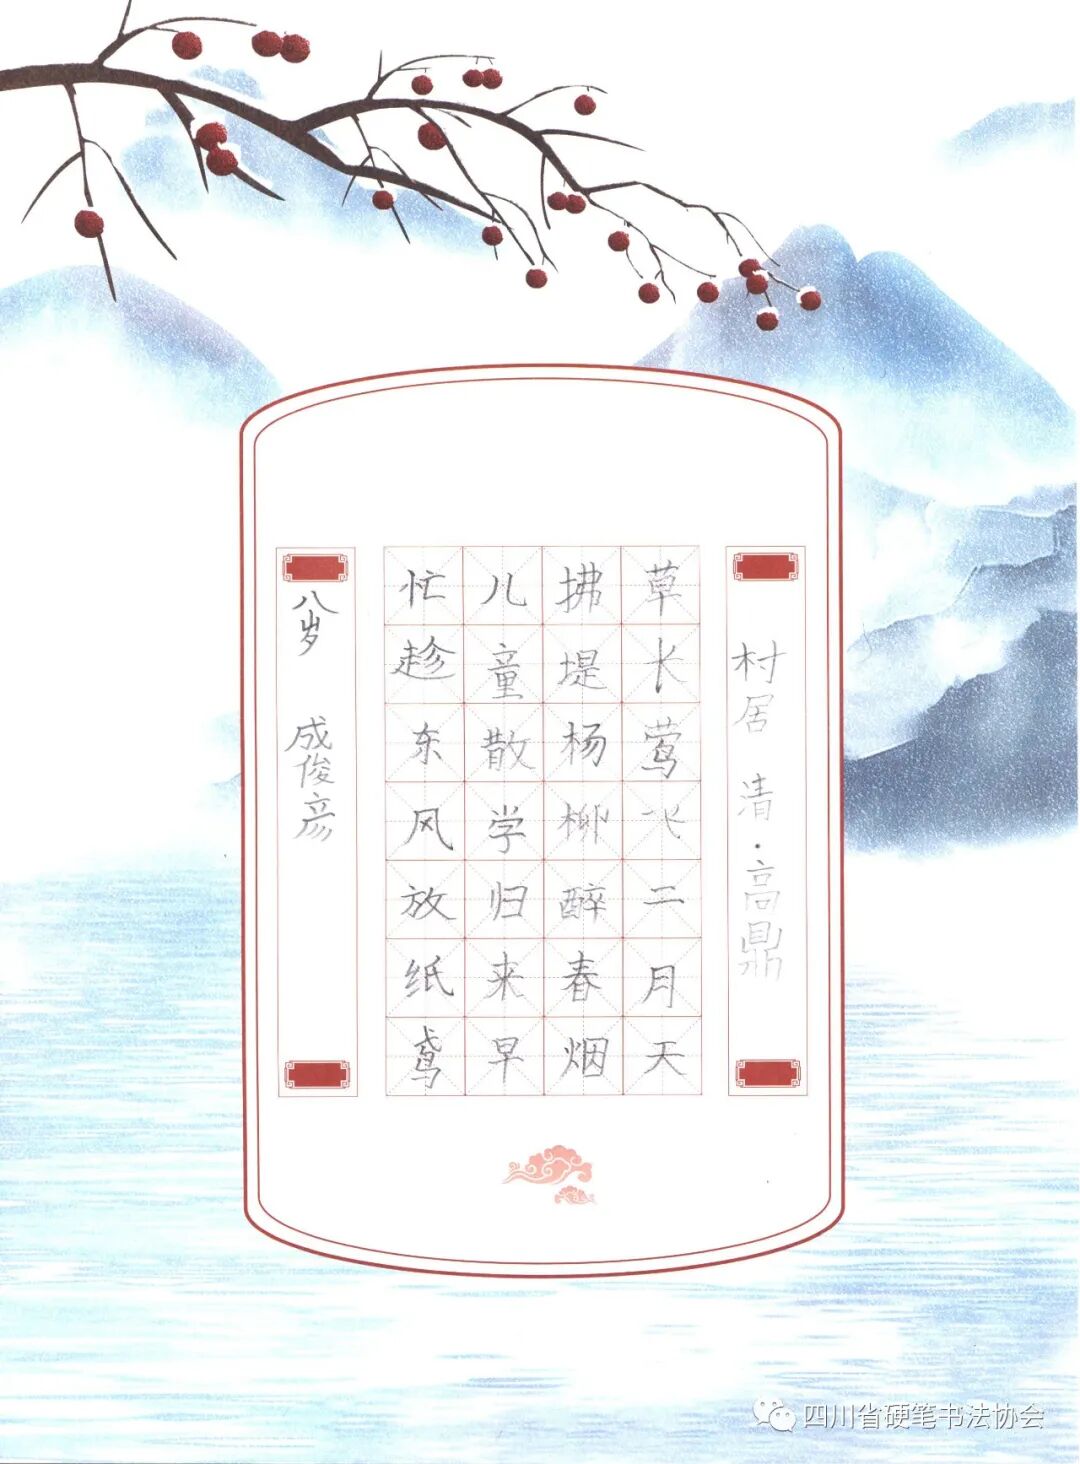 村居 清·高鼎
草长莺飞二月天
拂堤杨柳醉春烟
儿童散学归来早
忙趁东风放纸鸢
八岁 成俊彦
四川省硬笔书法协会